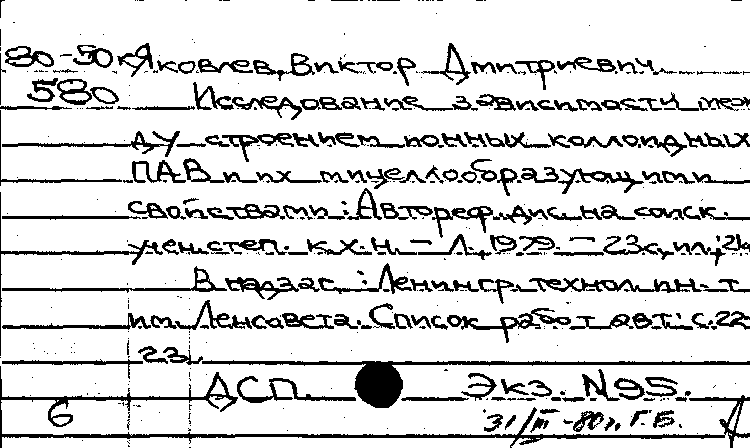 80-50к Яковлев, Виктор Дмитриевич.
580 Исследование зависимости меж
ду строением ионных коллоидных
ПАВ и их мицеллообразующими
свойствами: Автореф. дис. на соиск.
учен. степ. к.х.н. – Л., 1979. – 23с., ил.; 21
В надзаг.: Ленингр. технол. ин-т
им. Ленсовета. Список работ авт.: с. 22-
23.
ДСП. Экз. N95.
6 31/III-80г. Г.Б.